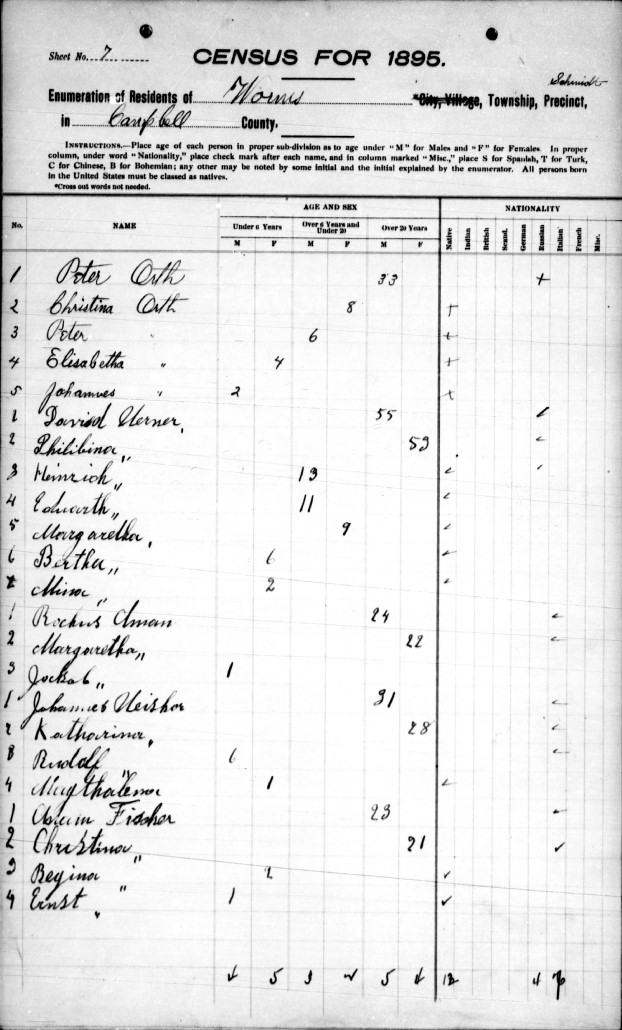 Sheet No. 7
CENSUS FOR 1895.
Schmidt
Enumeration of Residents of Worms *City, Village, Township, Precinct,
in Campbell County.
INSTRUCTIONS.—Place age of each person in proper sub-division as to age under "M" for Males and "F" for Females. In proper
column, under word "Nationality," place check mark after each name, and in column marked "Misc.," place S for Spanish, T for Turk,
C for Chinese, B for Bohemian; any other may be noted by some initial and the initial explained by the enumerator. All persons born
in the United States must be classed as natives.
*Cross out words not needed.
AGE AND SEX NATIONALITY
No. NAME Under 6 Years Over 6 Years and Under 20 Over 20 Years Native Indian British Scand. German Russian Italian French Misc.
M F M F M F
1 Peter Orth 33 +
2 Christina Orth 8 +
3 Peter " 6 +
4 Elisabetha " 4 +
5 Johannes " 2 +
1 David 55 ✓
2 Philibina " 53 ✓
3 Heinrich " 13 ✓ ✓
4 Edwarth " 11 ✓
5 Margaretha " 9 ✓
6 Bertha " 6 ✓
7 Mina " 2 ✓
1 Rochus Aman 24 ✓
2 Margaretha " 22 ✓
3 Jockob " 1
1 Johannes 31 ✓
2 Katharina " 28 ✓
3 Rudolf " 6 ✓
4 Magthalena 1 ✓
1 Adam Fischer 23 ✓
2 Christina " 21 ✓
3 Regina " 2 ✓
4 Ernst " 1 ✓
4 5 3 2 5 4 12 4 7